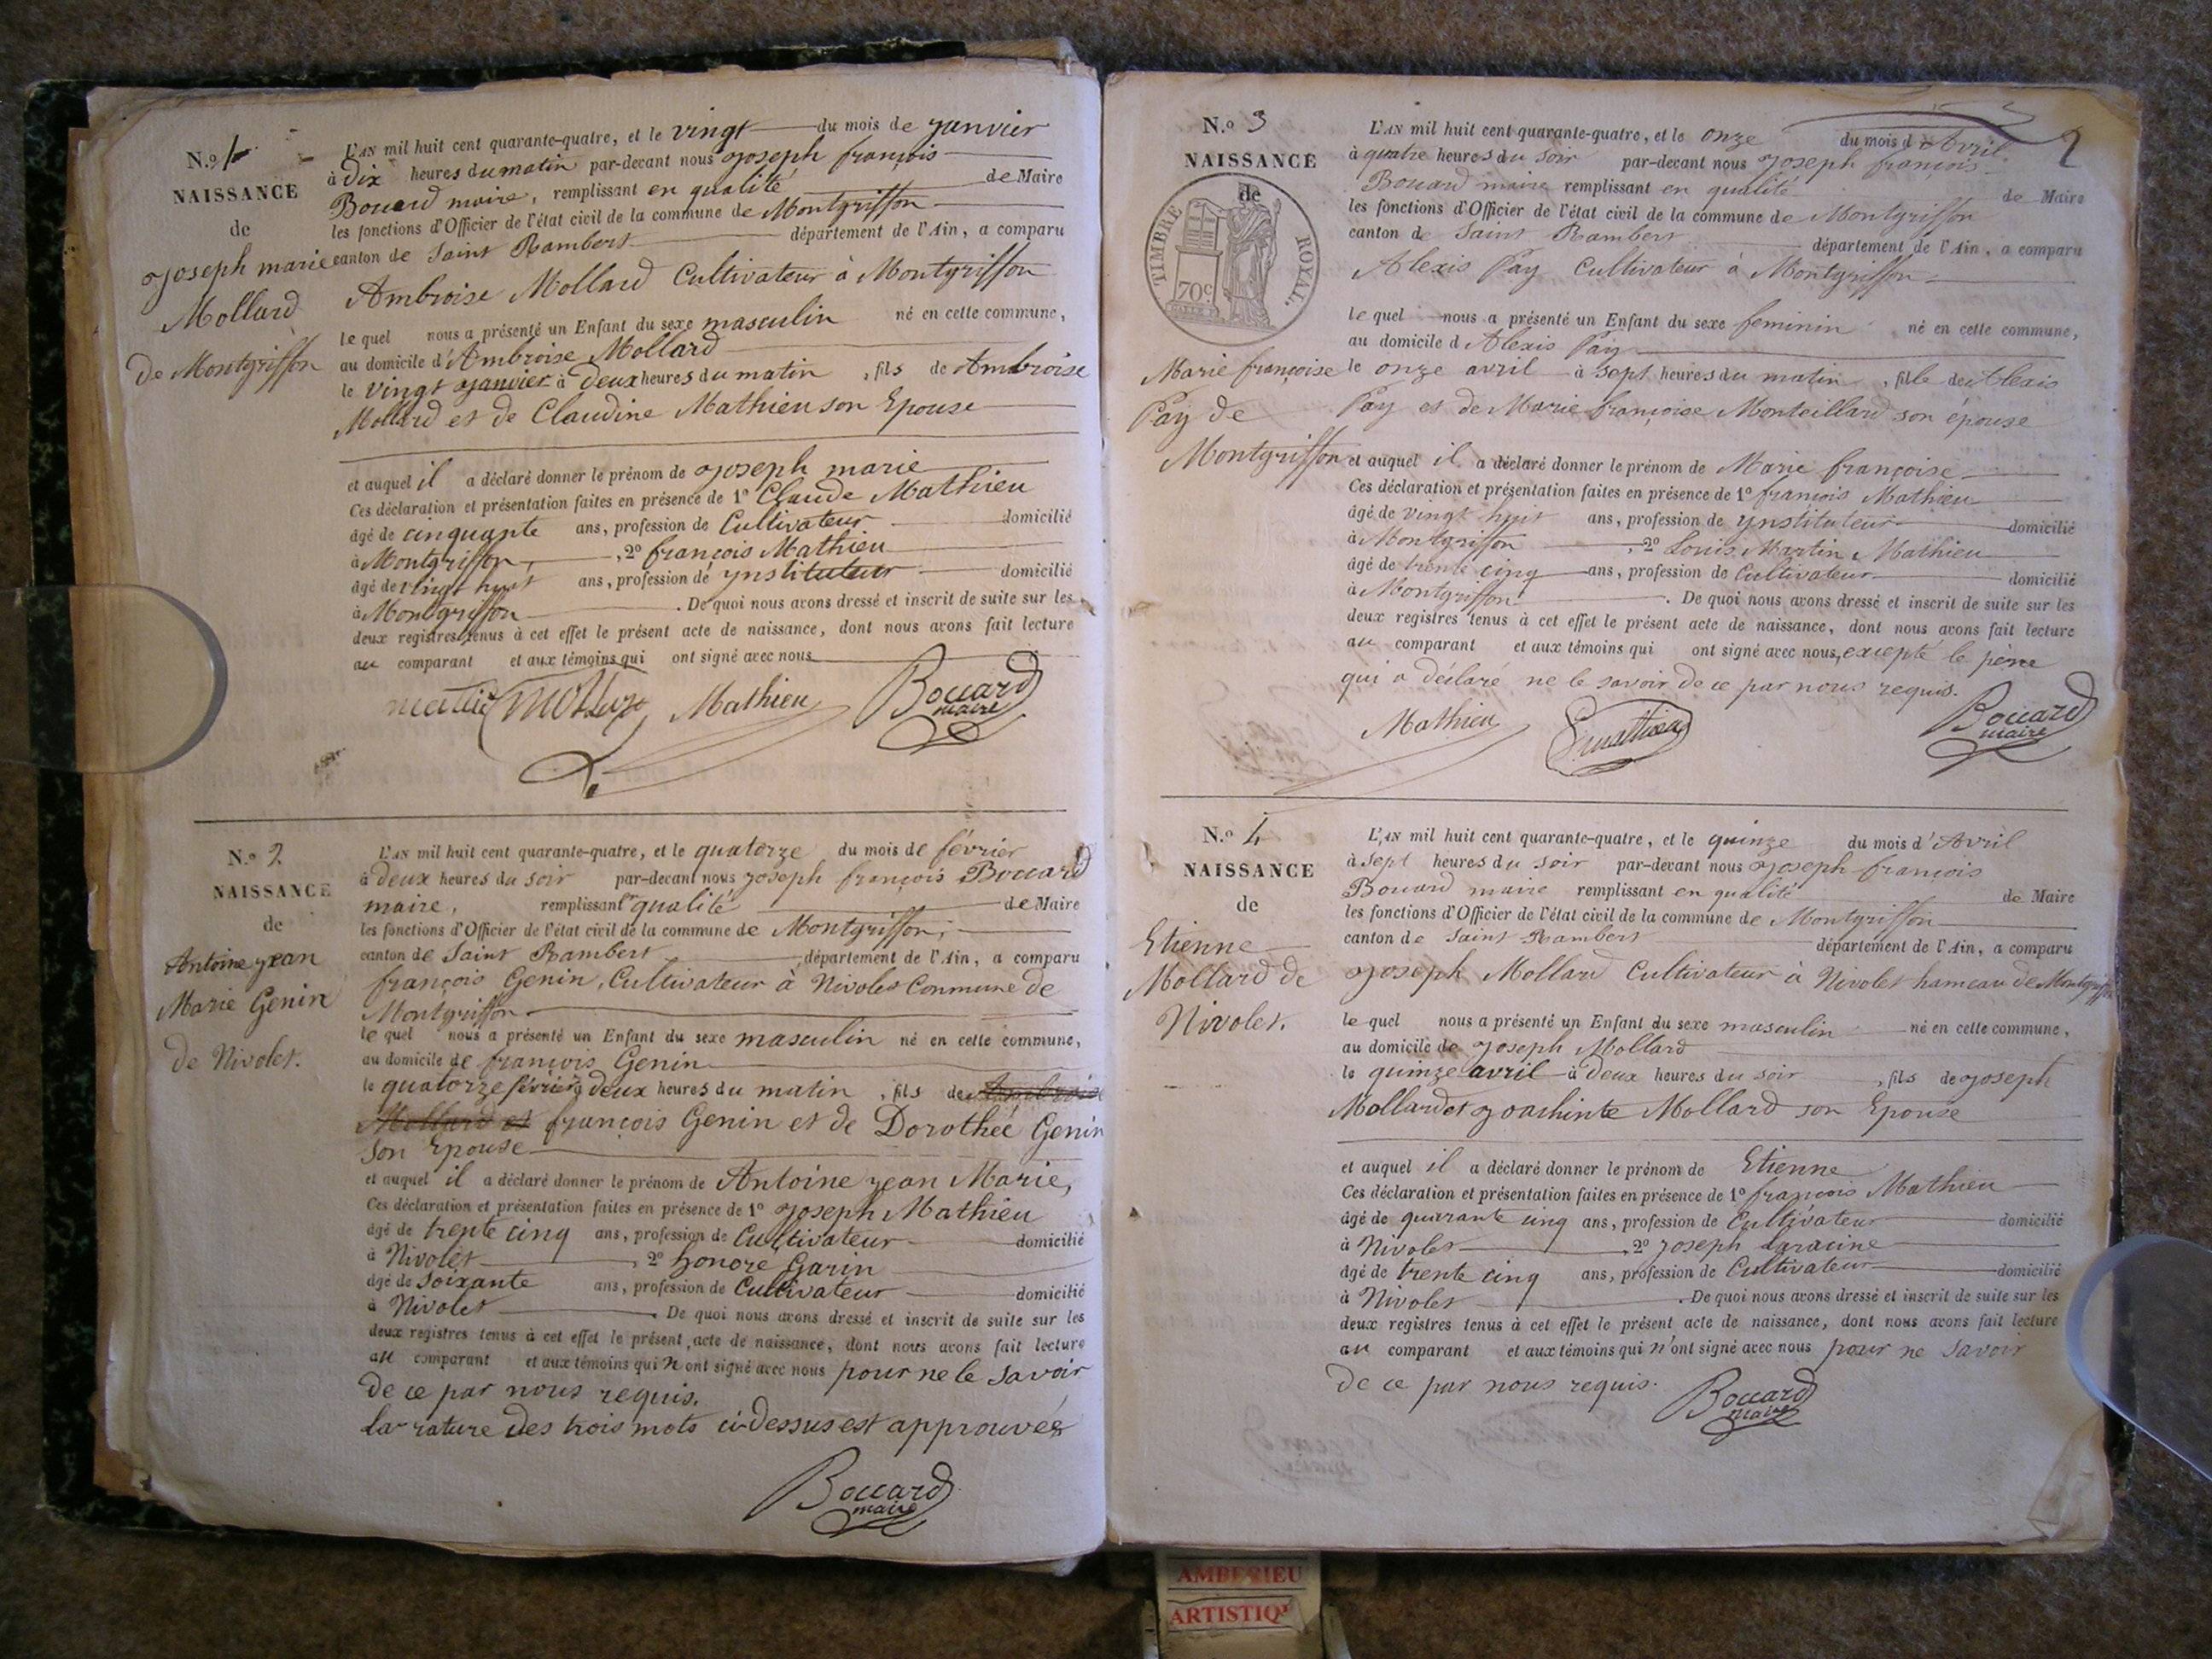 N.o 1
NAISSANCE
de
Joseph marie
Mollard
de Montgriffon
L'AN mil huit cent quarante-quatre, et le vingt du mois de janvier
à Dix heures du matin par-devant nous Joseph françois
Bouard maire, remplissant en qualité de Maire
les fonctions d'Officier de l'état civil de la commune de Montgriffon
canton de Saint Rambert département de l'Ain, a comparu
Ambroise Mollard Cultivateur à Montgriffon
le quel nous a présenté un Enfant du sexe masculin né en cette commune,
au domicile d'Ambroise Mollard
le vingt janvier à Deux heures du matin, fils de Ambroise
Mollard et de Claudine Mathieu son Epouse
et auquel il a déclaré donner le prénom de Joseph marie
Ces déclaration et présentation faites en présence de 1o Claude Mathieu
âgé de cinquante ans, profession de Cultivateur domicilié
à Montgriffon, , 2o françois Mathieu
âgé de vingt huit ans, profession de ynstituteur domicilié
à Montgriffon . De quoi nous avons dressé et inscrit de suite sur les
deux registres tenus à cet effet le présent acte de naissance, dont nous avons fait lecture
au comparant et aux témoins qui ont signé avec nous
Mathieu Bouard
maire
N.o 2
NAISSANCE
de
Antoine jean
Marie Genin
de Nivolet.
L'AN mil huit cent quarante-quatre, et le quatorze du mois de février
à Deux heures du soir par-devant nous Joseph françois Bouard
maire, remplissant en qualité de Maire
les fonctions d'Officier de l'état civil de la commune de Montgriffon,
canton de Saint Rambert département de l'Ain, a comparu
françois Genin, Cultivateur à Nivolet Commune de
Montgriffon
le quel nous a présenté un Enfant du sexe masculin né en cette commune,
au domicile de françois Genin
le quatorze février à deux heures du matin, fils de Ambroise
Mollard et françois Genin et de Dorothée Genin
son Epouse
et auquel il a déclaré donner le prénom de Antoine jean Marie,
Ces déclaration et présentation faites en présence de 1o Joseph Mathieu
âgé de trente cinq ans, profession de Cultivateur domicilié
à Nivolet , 2o honore Garin
âgé de soixante ans, profession de Cultivateur domicilié
à Nivolet . De quoi nous avons dressé et inscrit de suite sur les
deux registres tenus à cet effet le présent acte de naissance, dont nous avons fait lecture
au comparant et aux témoins qui n'ont signé avec nous pour ne le savoir
de ce par nous requis.
la rature des trois mots ci-dessus est approuvée
Bouard
maire
2
N.o 3
NAISSANCE
de
TIMBRE ROYAL.
70c
Marie françoise
Pay de
Montgriffon
L'AN mil huit cent quarante-quatre, et le onze du mois d'Avril
à quatre heures du soir par-devant nous Joseph françois
Bouard maire remplissant en qualité de Maire
les fonctions d'Officier de l'état civil de la commune de Montgriffon
canton de Saint Rambert département de l'Ain, a comparu
Alexis Pay Cultivateur à Montgriffon
le quel nous a présenté un Enfant du sexe feminin né en cette commune,
au domicile d'Alexis Pay
le onze avril à sept heures du matin, fille de Alexis
Pay et de Marie françoise Monteillard son épouse
et auquel il a déclaré donner le prénom de Marie françoise
Ces déclaration et présentation faites en présence de 1o françois Mathieu
âgé de vingt huit ans, profession de ynstituteur domicilié
à Montgriffon , 2o Louis Martin Mathieu
âgé de trente cinq ans, profession de Cultivateur domicilié
à Montgriffon . De quoi nous avons dressé et inscrit de suite sur les
deux registres tenus à cet effet le présent acte de naissance, dont nous avons fait lecture
au comparant et aux témoins qui ont signé avec nous, excepté le père
qui a déclaré ne le savoir de ce par nous requis.
Mathieu Bouard
maire
N.o 4
NAISSANCE
de
Etienne
Mollard de
Nivolet.
L'AN mil huit cent quarante-quatre, et le quinze du mois d'Avril
à sept heures du soir par-devant nous Joseph françois
Bouard maire remplissant en qualité de Maire
les fonctions d'Officier de l'état civil de la commune de Montgriffon
canton de Saint Rambert département de l'Ain, a comparu
Joseph Mollard Cultivateur à Nivolet hameau de Montgriffon
le quel nous a présenté un Enfant du sexe masculin né en cette commune,
au domicile de Joseph Mollard
le quinze avril à Deux heures du soir, fils de Joseph
Mollard et Joachinte Mollard son Epouse
et auquel il a déclaré donner le prénom de Etienne
Ces déclaration et présentation faites en présence de 1o françois Mathieu
âgé de quarante cinq ans, profession de Cultivateur domicilié
à Nivolet , 2o Joseph Laracine
âgé de trente cinq ans, profession de Cultivateur domicilié
à Nivolet . De quoi nous avons dressé et inscrit de suite sur les
deux registres tenus à cet effet le présent acte de naissance, dont nous avons fait lecture
au comparant et aux témoins qui n'ont signé avec nous pour ne savoir
de ce par nous requis.
Bouard
maire
AMBERIEU
ARTISTIQU